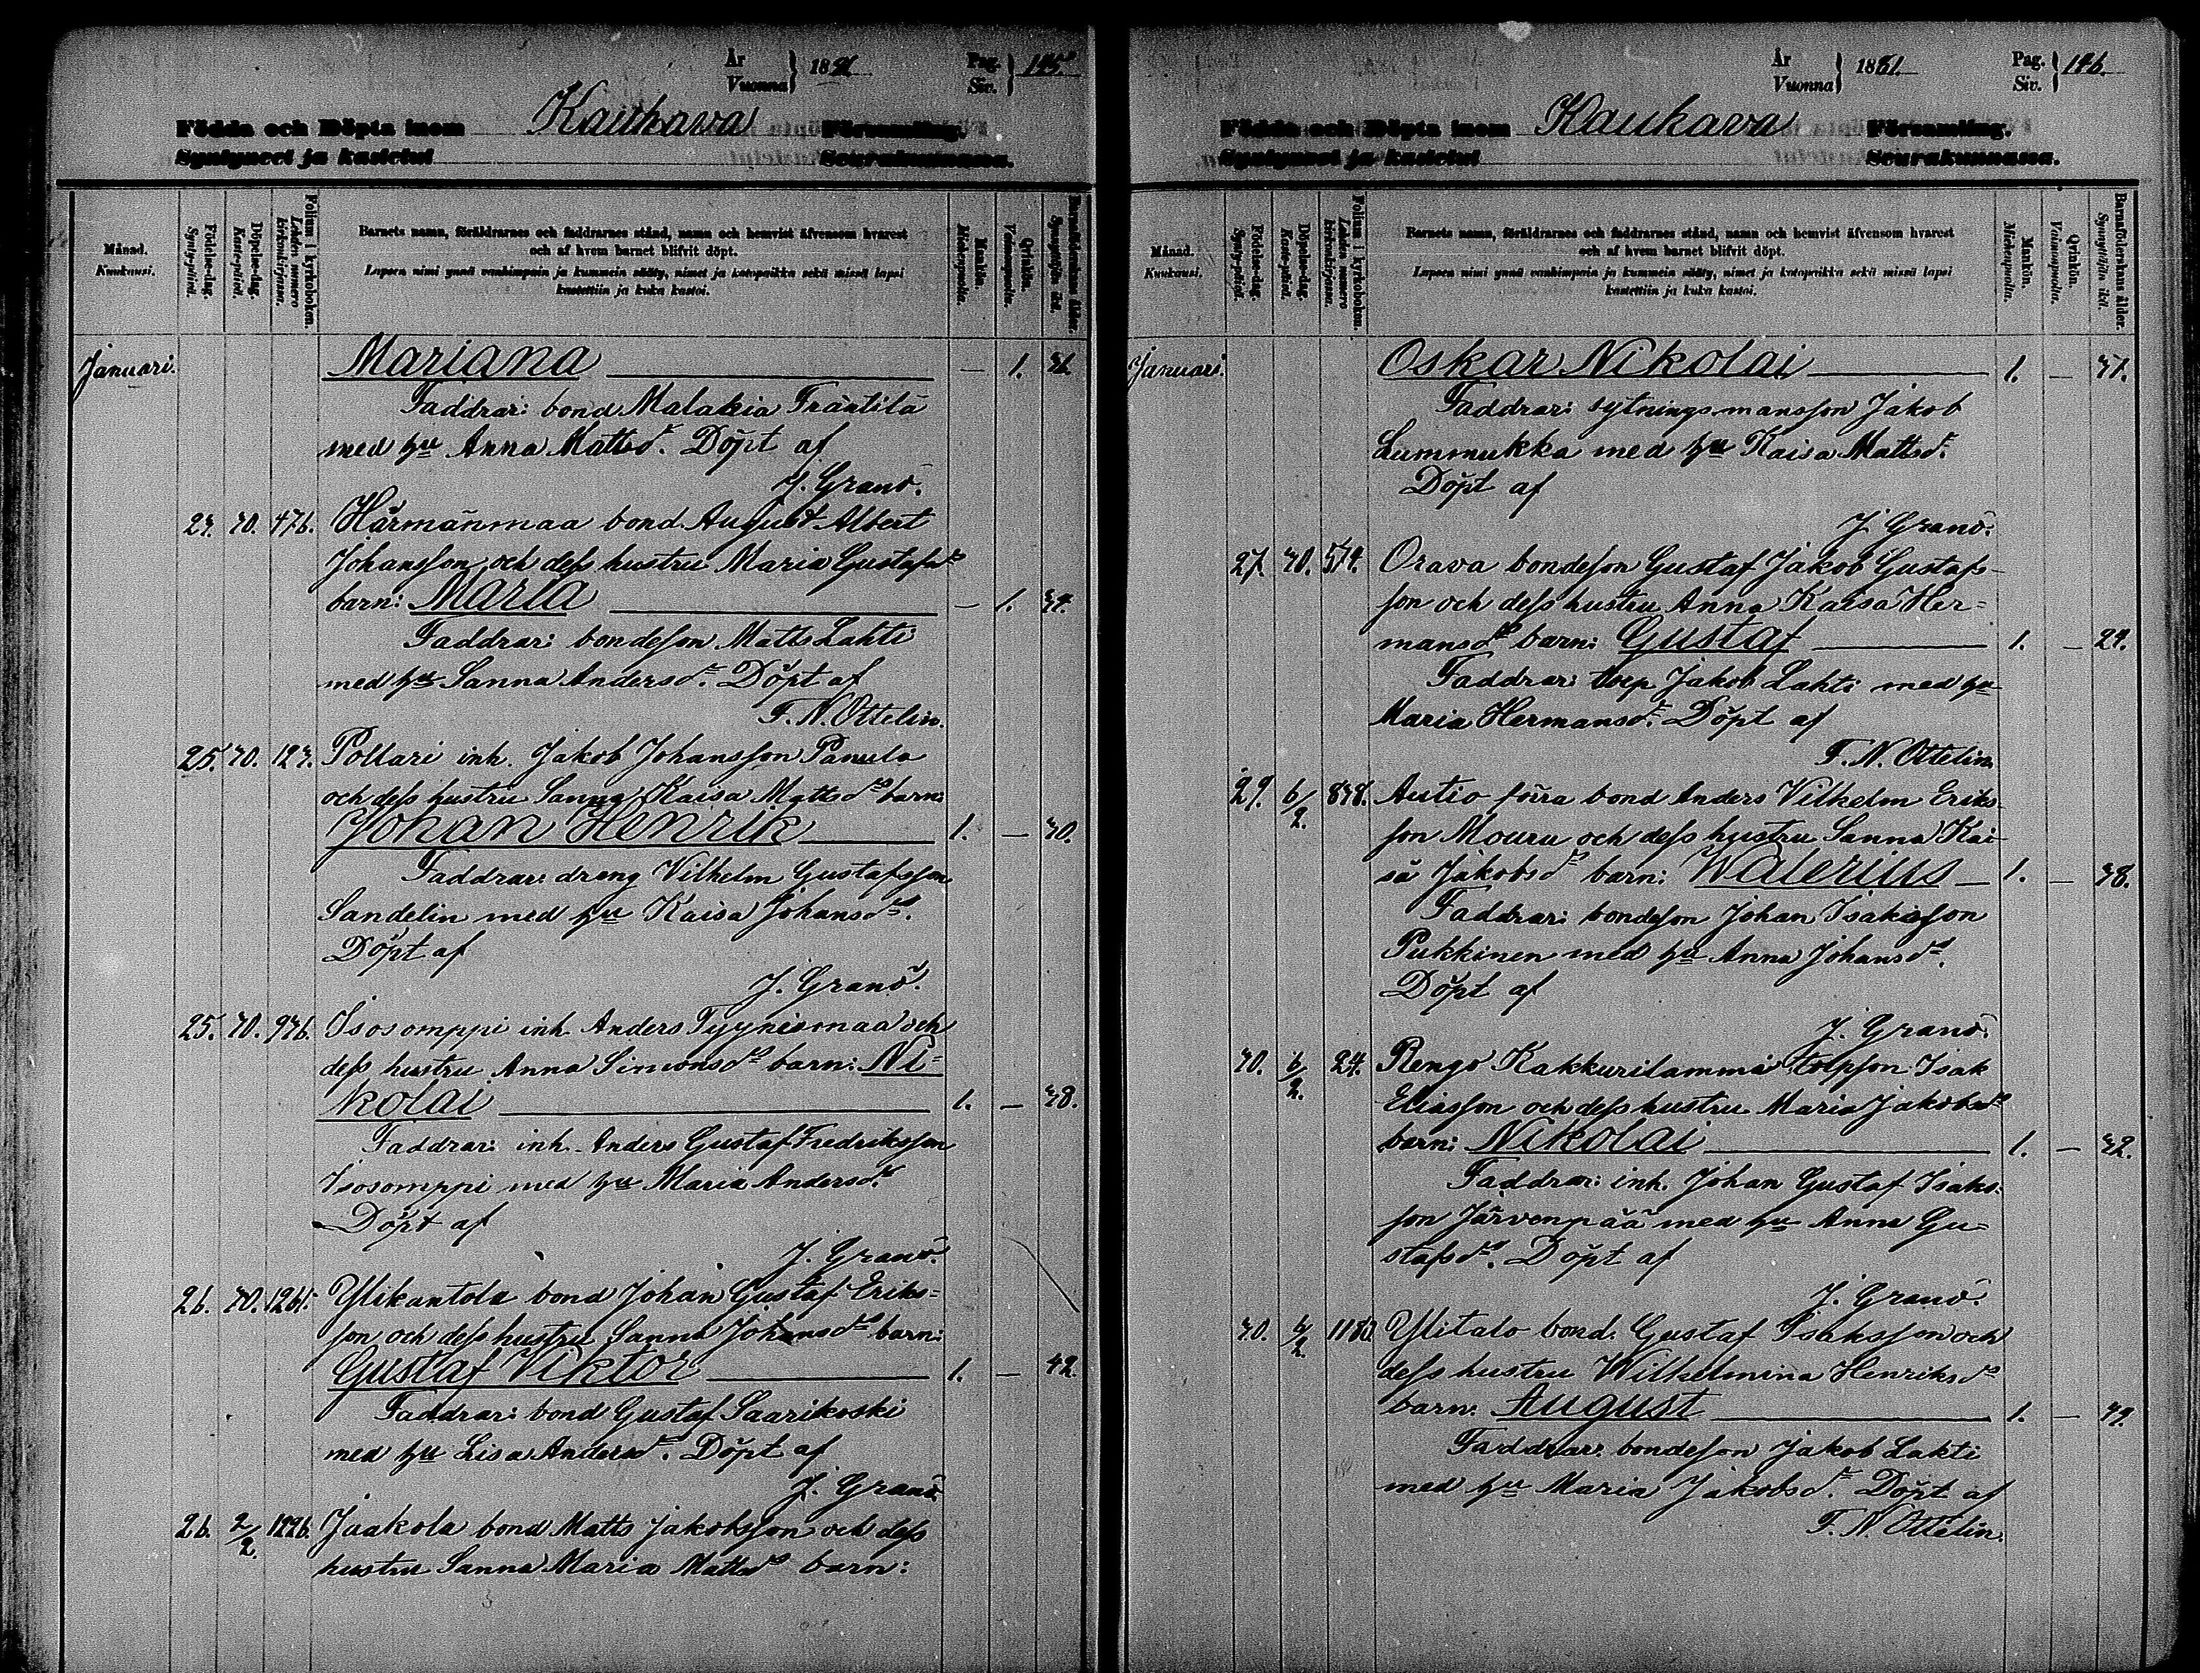 År
Vuonna } 1881
Pag.
Siv. } 145.
Födda och Döpta inom Kauhava Församling.
Syntyneet ja kastetut Seurakunnassa.
Månad.
Kuukausi.
Födelse-dag.
Synty-päivä.
Döpelse-dag.
Kaste-päivä.
Folium i kyrkoboken.
Lehden numero kirkonkirjassa.
Barnets namn, föräldrarnes och faddrarnes stånd, namn och hemvist äfvensom hvarest
och af hvem barnet blifvit döpt.
Lapsen nimi ynnä vanhimpain ja kummein sääty, nimet ja kotopaikka sekä missä lapsi
kastettiin ja kuka kastoi.
Mankön.
Miehenpuolia.
Qvinkön.
Vaimonpuolia.
Barnaföderskans ålder.
Synnyttäjän ikä.
Januari. Mariana — 1.
Faddrar: bond Malakia Fräntilä
med hu Anna Mattsdr. Döpt af
J. Granö.
23. 30. 476. Härmänmaa bond August Albert
Johansson och dess hustru Maria Gustafsds
barn: Maria — 1. 34.
Faddrar: bondeson Matts Lahti
med hu Sanna Andersdr. Döpt af
F. N. Ottelin.
25. 30. 123. Pollari inh. Jakob Johansson Panula
och dess hustru Sanna Kaisa Mattsds barn:
Johan Henrik 1. — 30.
Faddrar: dreng Vilhelm Gustafsson
Sandelin med hu Kaisa Johansdr.
Döpt af
J. Granö.
25. 30. 976. Isosomppi inh. Anders Tyynismaa och
dess hustru Anna Simonsds barn: Ni=
kolai 1. — 38.
Faddrar: inh. Anders Gustaf Fredriksson
Isosomppi med hu Maria Andersdr.
Döpt af
J. Granö.
26. 30. 1261. Ylikantola bond Johan Gustaf Eriks=
son och dess hustru Sanna Johansds barn:
Gustaf Viktor 1. — 42.
Faddrar: bond Gustaf Saarikoski
med hu Lisa Andersdr. Döpt af
J. Granö
26. 2/2. 1226. Jaakola bond Matts Jakobsson och dess
hustru Sanna Maria Mattsds barn:
År
Vuonna } 1881.
Pag.
Siv. } 146.
Födda och Döpta inom Kauhava Församling.
Syntyneet ja kastetut Seurakunnassa.
Månad.
Kuukausi.
Födelse-dag.
Synty-päivä.
Döpelse-dag.
Kaste-päivä.
Folium i kyrkoboken.
Lehden numero kirkonkirjassa.
Barnets namn, föräldrarnes och faddrarnes stånd, namn och hemvist äfvensom hvarest
och af hvem barnet blifvit döpt.
Lapsen nimi ynnä vanhimpain ja kummein sääty, nimet ja kotopaikka sekä missä lapsi
kastettiin ja kuka kastoi.
Mankön.
Miehenpuolia.
Qvinkön.
Vaimonpuolia.
Barnaföderskans ålder.
Synnyttäjän ikä.
Januari. Oskar Nikolai 1. — 31.
Faddrar: sytningsmansson Jakob
Lummukka med hu Kaisa Mattsdr.
Döpt af
J. Granö.
27. 30. 514. Orava bondeson Gustaf Jakob Gustafs-
son och dess hustru Anna Kaisa Her=
mansds barn: Gustaf 1. — 24.
Faddrar: torp Jakob Lahti med hu
Maria Hermansdr. Döpt af
F. N. Ottelin.
29. 6/2. 838. Autio förra bond Anders Vilhelm Eriks-
son Mouru och dess hustru Sanna Kai
sa Jakobsds barn: Walerius 1. — 38.
Faddrar: bondeson Johan Isaksson
Pukkinen med hu Anna Johansdr.
Döpt af
J. Granö.
30. 6/2. 24. Rengo Kakkurilammi torpson Isak
Eliasson och dess hustru Maria Jakobsds
barn: Nikolai 1. — 32.
Faddrar: inh. Johan Gustaf Isaks-
son Järvenpää med hu Anna Gu=
stafsdr. Döpt af
J. Granö.
30. 6/2. 1180. Ylitalo bond. Gustaf Isaksson och
dess hustru Wilhelmina Henriksds
barn: August 1. — 39.
Faddrar: bondeson Jakob Lahti
med hu Maria Jakobsdr. Döpt af
F. N. Ottelin.